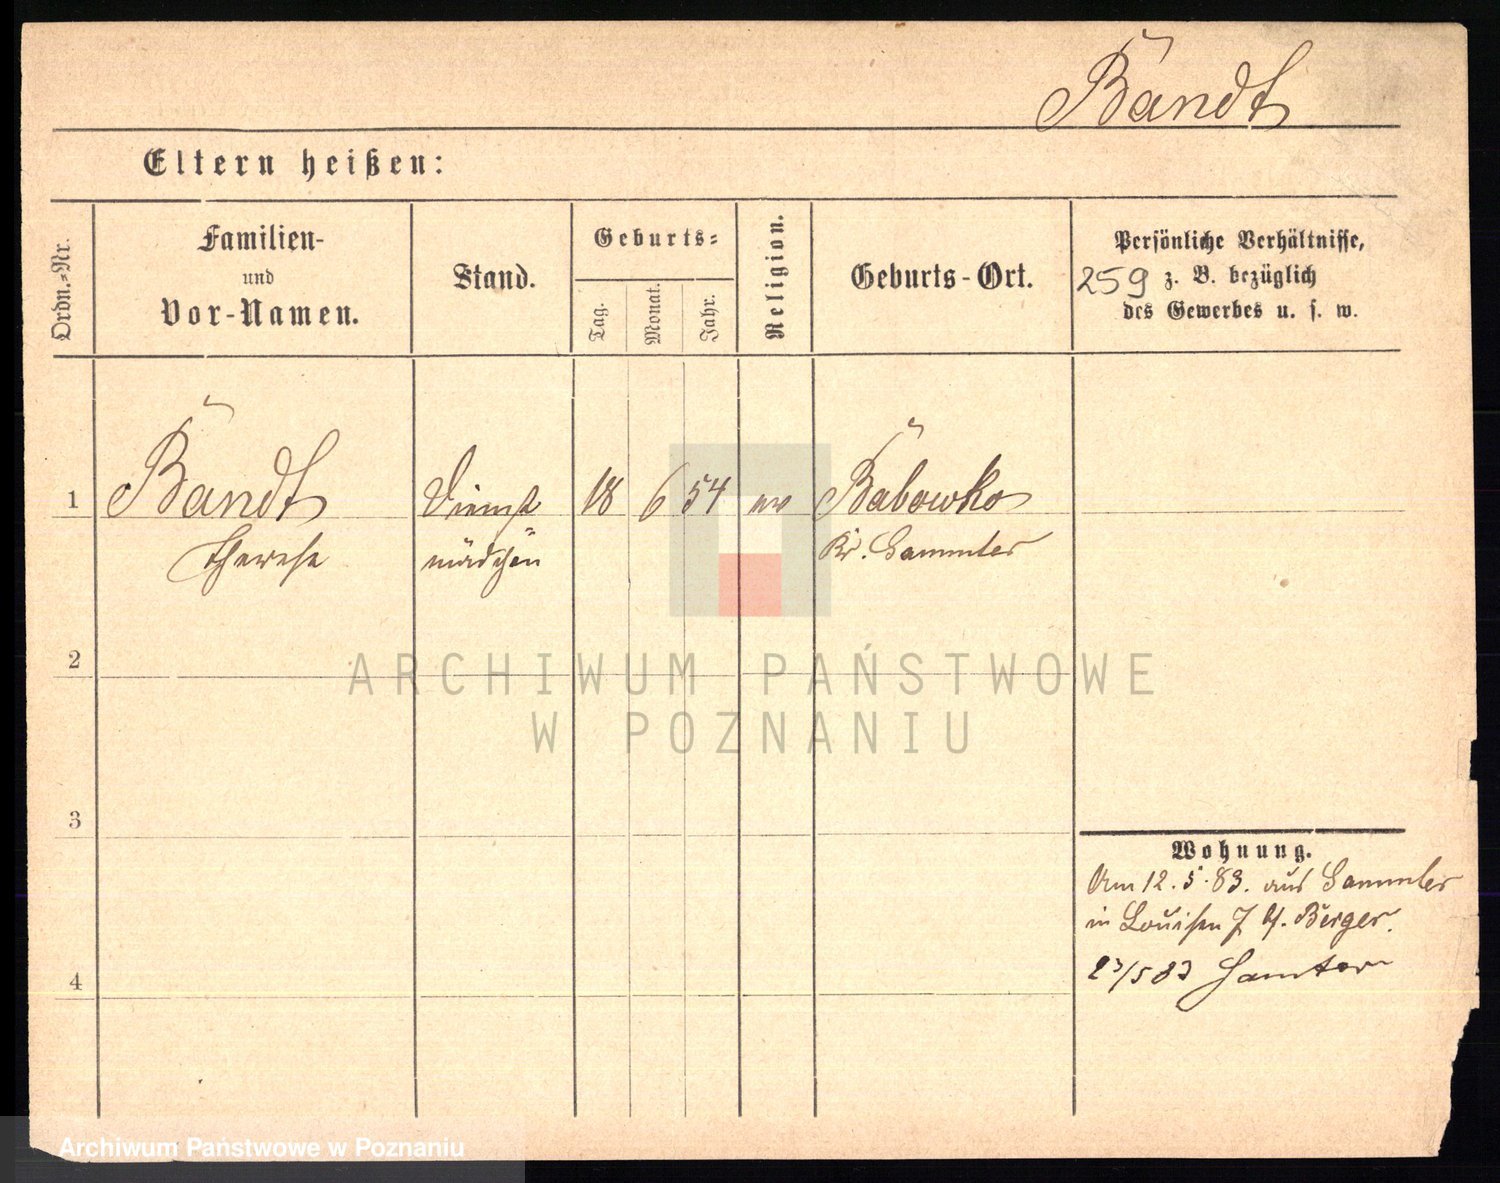 Bandt
Eltern heißen:
Ordn.-Nr.
Familien-
und
Vor-Namen.
Stand.
Geburts-
Tag.
Monat.
Jahr.
Religion.
Geburts-Ort.
Persönliche Verhältnisse,
259 z. B. bezüglich
des Gewerbes u. s. w.
1
Bandt
Therese
Dienst
mädchen
18
6
54
ev
Babowko
Kr. Samter
2
ARCHIWUM PAŃSTWOWE
W POZNANIU
3
Wohnung.
Am 12.5.83. aus Samter
in Louisen 7 b. Berger.
23/5 83 Samter
4
Archiwum Państwowe w Poznaniu